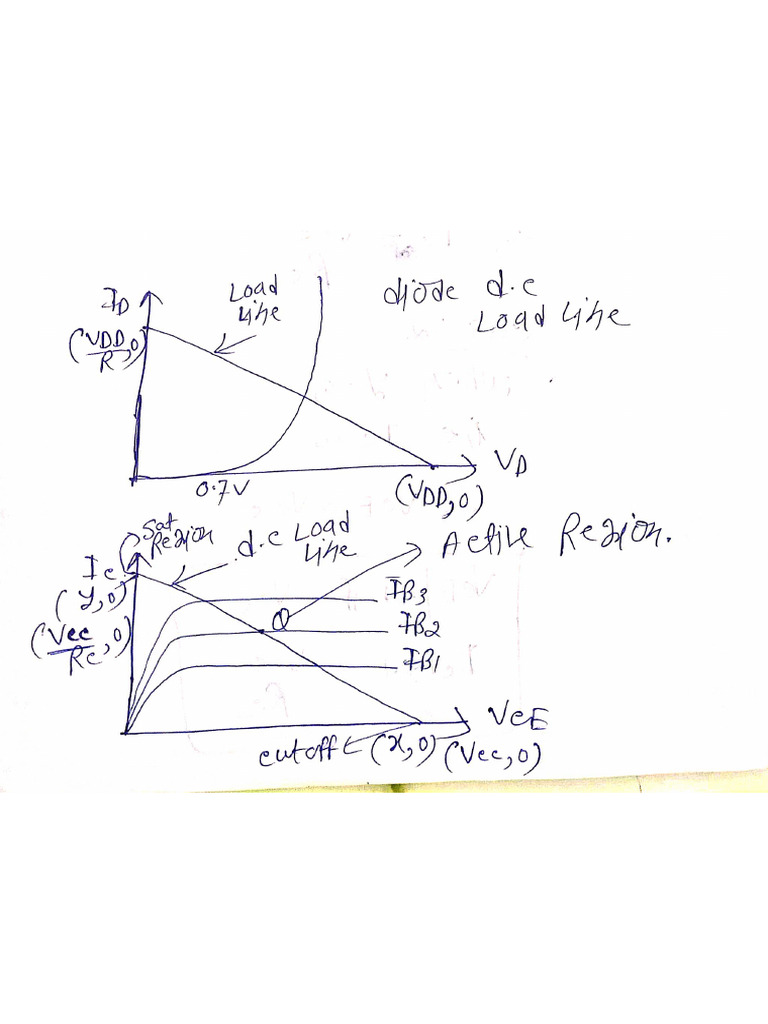 ID
Load
Line
diode d.c
Load Line
(VDD/R,0)
VD
0.7V
(VDD,0)
Sat
Region
d.c Load
Line
Active Region.
Ic
(y,0)
(Vcc/Rc,0)
Q
IB3
IB2
IB1
VCE
cutoff (x,0) (Vcc,0)